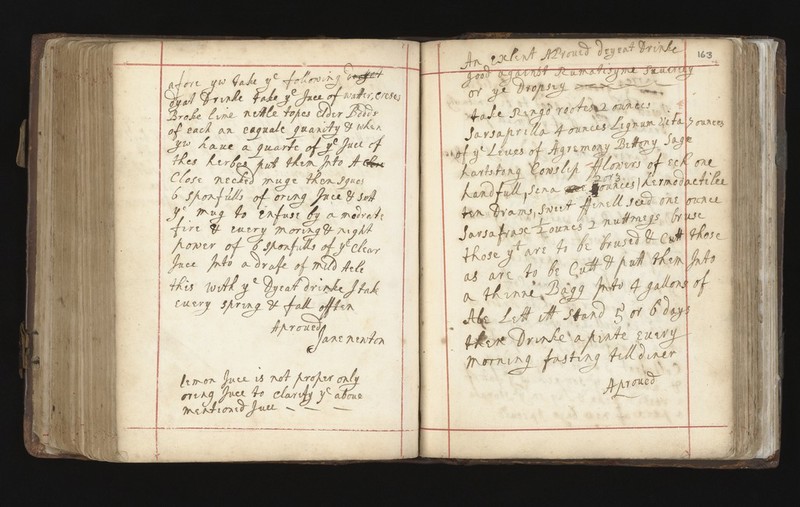 afore yw take yᵉ following
dyat Drinke take yᵉ Juce of watter, creses
Broke lime nettle topes Elder
of each an eaquale quanity & when
yw have a quarte of yᵉ Juce of
thes herbes put them Into A
Close necked muge then sques
6 sponfulls of oring Juce & sott
yᵉ mug to enfuse by a modrate
fire & every moring & night
power of 6 sponfulls of yᵉ Clear
Juce Into a drafe of mild Aele
this with yᵉ Dyeat drinke I tak
every spring & fall offten
Aproued
Jane newton
lemon Juce is not proper only
oring Juce to clarify yᵉ above
mentioned Juce
163
An exlent Aproued dyeat Drinke
good against Rumatisyme Scurvey
or yᵉ Dropsey
take Ringo rootes 2 ounces
Sarsaprilla 4 ounces Lignum Vita 5 ounces
of yᵉ Leves of Agremony Bettony Sage
hartstong Conslip fflowers of ech one
handfull, Sena ounces, hermodactiles
ten Drams, Sweet ffinell seed one ounce
Sarsafrase 2 ounces 2 nuttmegs bruse
those yᵗ are to be brused & Cutt those
as are to be Cutt & putt them Into
a thinne Bagg Into 4 gallons of
Ale Lett itt stand 5 or 6 days
then Drinke a pinte every
morning fasting till diner
Aproued